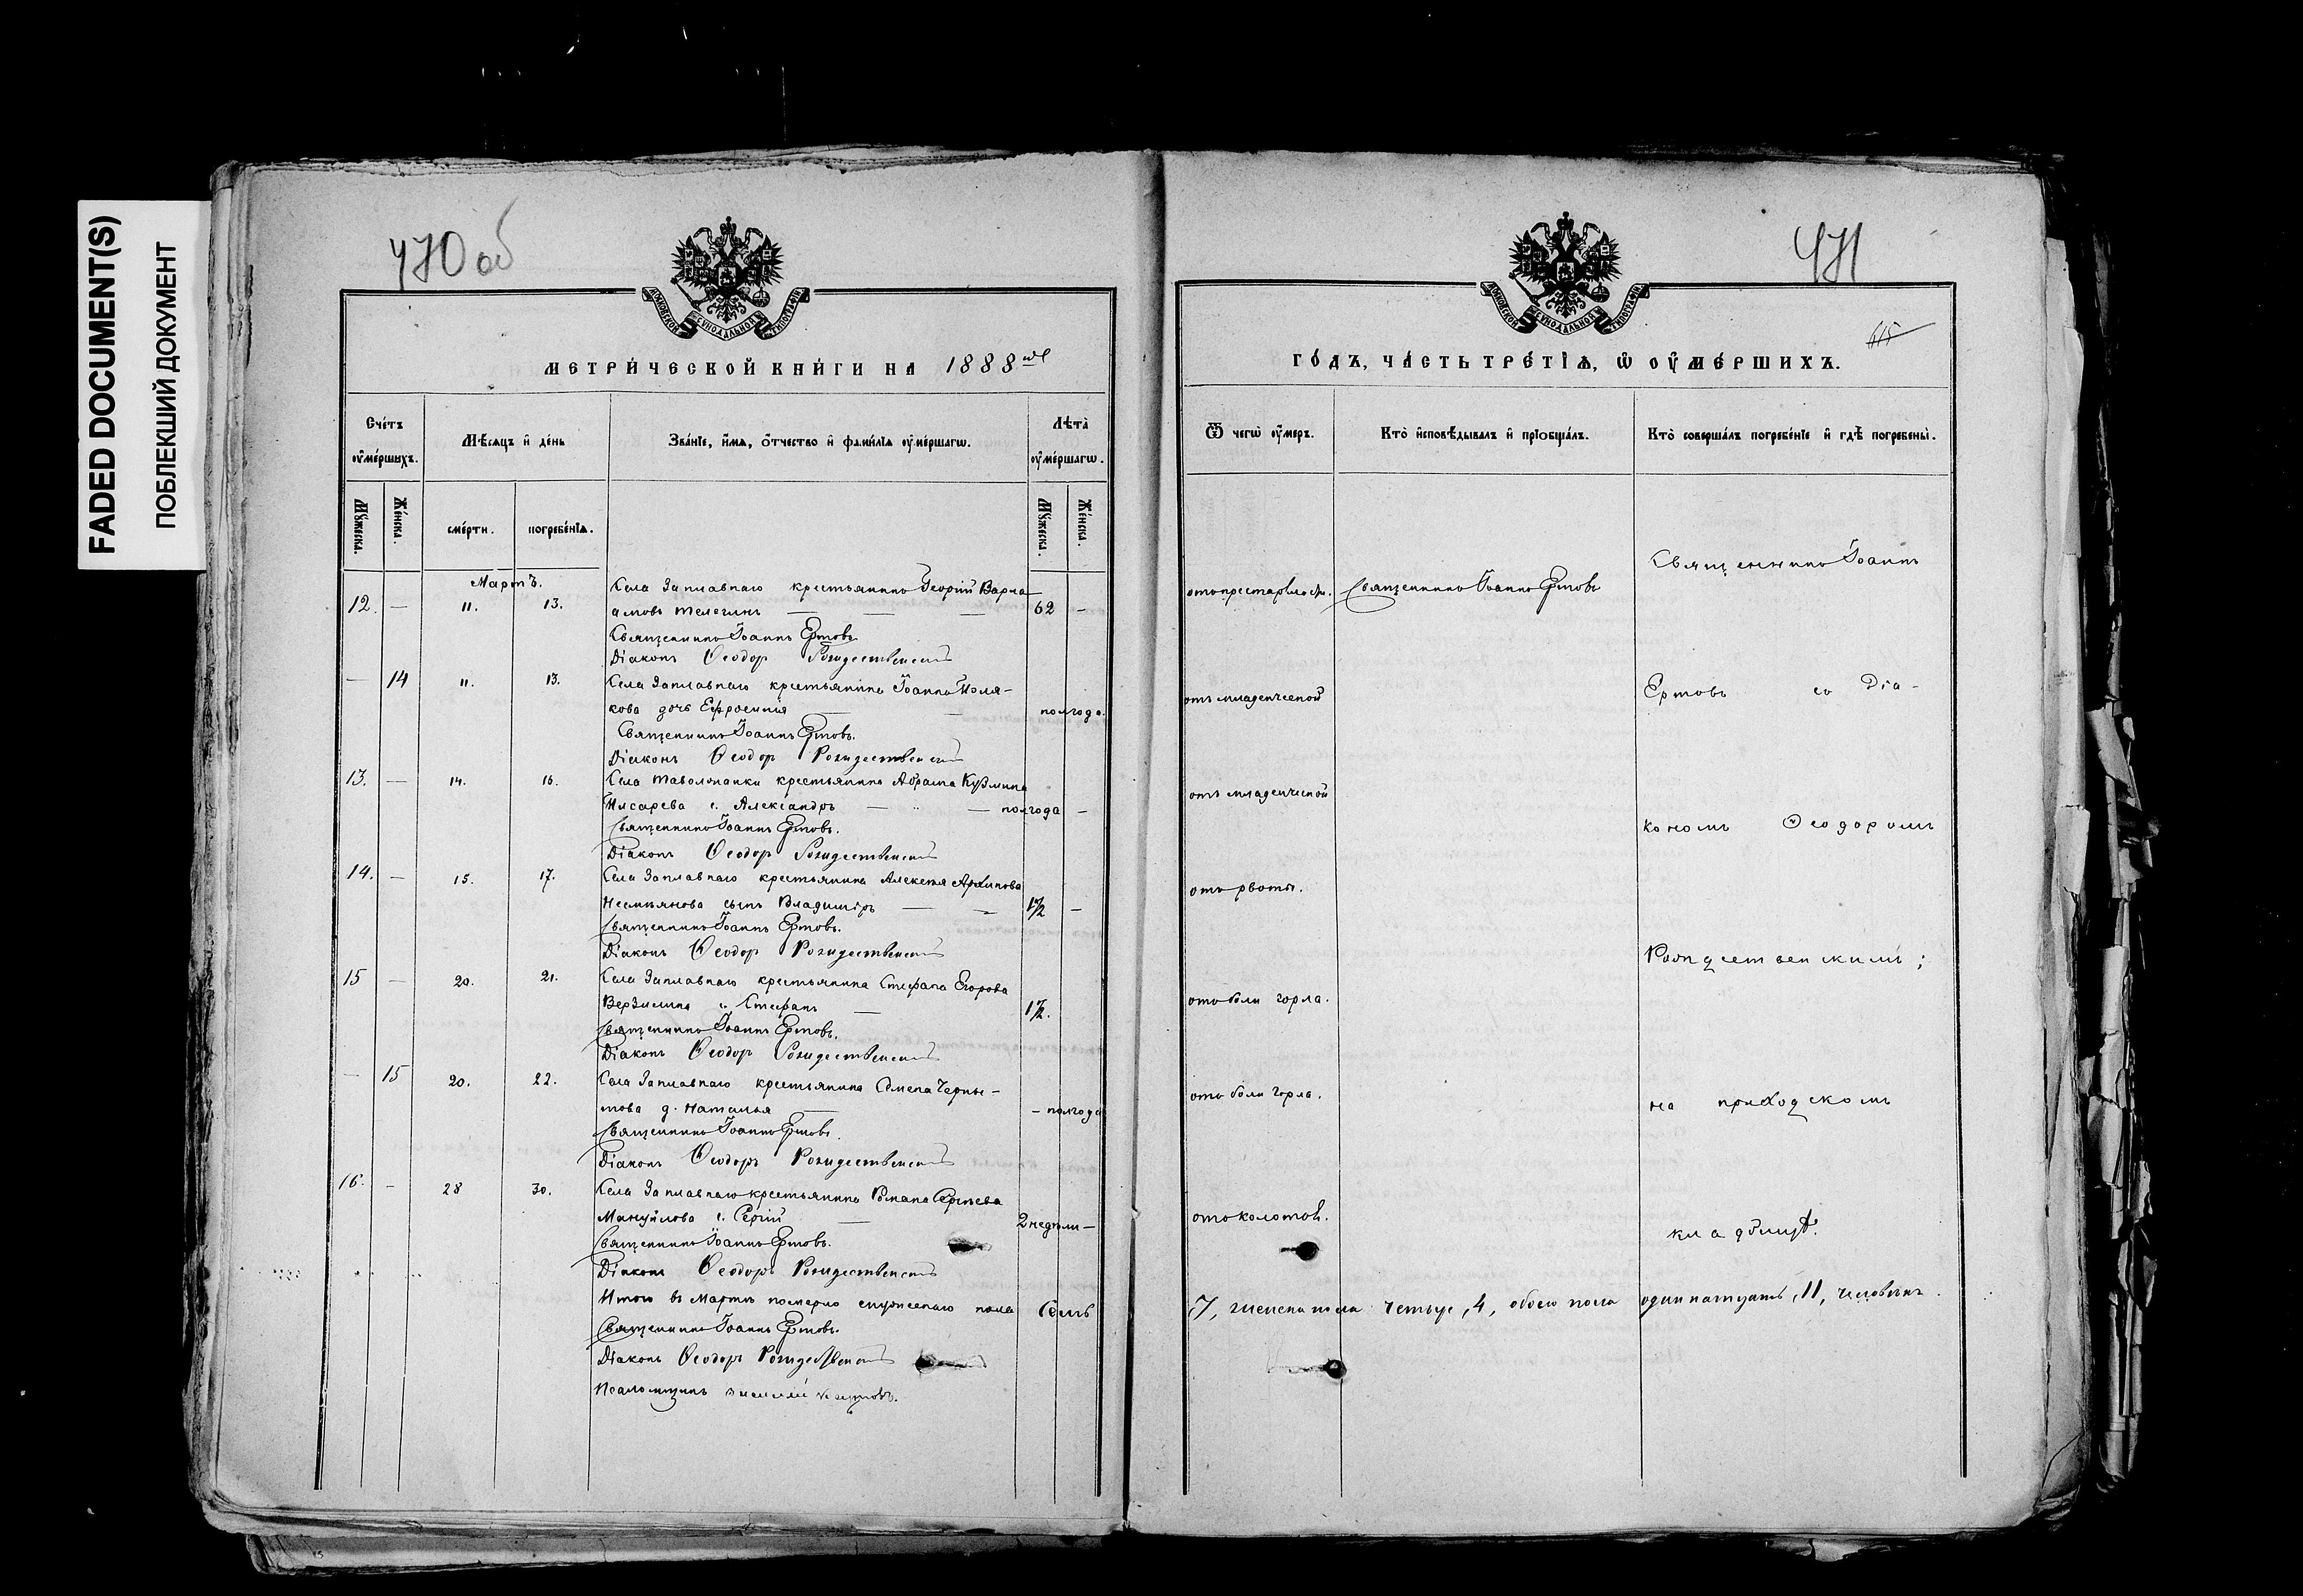 FADED DOCUMENT(S)
ПОБЛЕКШИЙ ДОКУМЕНТ
470 об
МОСКОВСКОЙ СУНОДАЛЬНОЙ ТИПОГРАФІИ
МЕТРИ́ЧЕСКОЙ КНИ́ГИ НА 1888
Сче́тъ ᲂу҆ме́ршихъ.
Мѣ́сяцъ и҆ де́нь
Зва́нїе, и҆́мѧ, ѻ҆́тчество и҆ фамѝлїѧ ᲂу҆ме́ршагѡ.
Лѣ́та ᲂу҆ме́ршагѡ.
Мꙋ́жеска.
Же́нска.
сме́рти.
погребе́нїѧ.
Мꙋ́жеска.
Же́нска.
Мартъ.
12. — 11. 13. Села Заплавнаго крестьянинъ Георгій Варла-
амовъ Телегинъ — — — 62 —
Священникъ Іоаннъ Ертовъ
Діаконъ Ѳеодор Рождественскій
— 14 11. 13. Села Заплавнаго крестьянина Іоанна Поля-
кова дочь Ефросинія — — полгода.
Священникъ Іоаннъ Ертовъ.
Діаконъ Ѳеодор Рождественскій
13. — 14. 16. Села Таволжанки крестьянина Абрама Кузмина
Писарева с. Александръ — — полгода —
Священникъ Іоаннъ Ертовъ.
Діаконъ Ѳеодор Рождественскій
14. — 15. 17. Села Заплавнаго крестьянина Алексѣя Архипова
сынъ Владиміръ — — 1½ —
Священникъ Іоаннъ Ертовъ.
Діаконъ Ѳеодор Рождественскій
15 — 20. 21. Села Заплавнаго крестьянина Стефана Егорова
Верзилина с. Стефанъ — 1½.
Священникъ Іоаннъ Ертовъ.
Діаконъ Ѳеодор Рождественскій
— 15 20. 22. Села Заплавнаго крестьянина Семена Черны-
шова д. Наталья — — полгода
Священникъ Іоаннъ Ертовъ.
Діаконъ Ѳеодоръ Рождественскій
16. — 28 30. Села Заплавнаго крестьянина Романа Сергѣева
Мануйлова с. Сергій — 2 недѣли —
Священникъ Іоаннъ Ертовъ.
Діаконъ Ѳеодоръ Рождественскій
Итого въ Мартѣ померло мужескаго пола Семь
Священникъ Іоаннъ Ертовъ.
Діаконъ Ѳеодоръ Рождественскій
Псаломщикъ
471
615
МОСКОВСКОЙ СУНОДАЛЬНОЙ ТИПОГРАФІИ
ГО́ДЪ, ЧА́СТЬ ТРЕ́ТЇѦ, Ѡ҆ ОУ҆МЕ́РШИХЪ.
Ѿ чегѡ̀ ᲂу҆́меръ.
Кто̀ и҆сповѣ́дывалъ и҆ прїѡбща́лъ.
Кто̀ соверша́лъ погребе́нїе и҆ гдѣ̀ погребены̀.
отъ престарѣлости. Священникъ Іоаннъ Ертовъ
Священникъ Іоаннъ
отъ младенческой
Ертовъ со Діа-
отъ младенческой
кономъ Ѳеодоромъ
отъ рвоты.
Рождественскимъ;
отъ боли горла.
отъ боли горла.
на приходскомъ
отъ колотой.
кладбищѣ.
7, женска пола четыре, 4, обоего пола одиннатцать, 11, человѣкъ.